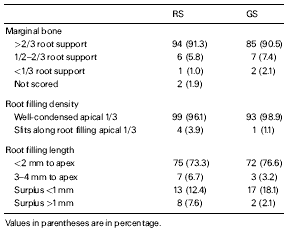 RS GS
Marginal bone
>2/3 root support 94 (91.3) 85 (90.5)
1/2–2/3 root support 6 (5.8) 7 (7.4)
<1/3 root support 1 (1.0) 2 (2.1)
Not scored 2 (1.9)
Root filling density
Well-condensed apical 1/3 99 (96.1) 93 (98.9)
Slits along root filling apical 1/3 4 (3.9) 1 (1.1)
Root filling length
<2 mm to apex 75 (73.3) 72 (76.6)
3–4 mm to apex 7 (6.7) 3 (3.2)
Surplus <1 mm 13 (12.4) 17 (18.1)
Surplus >1 mm 8 (7.6) 2 (2.1)
Values in parentheses are in percentage.